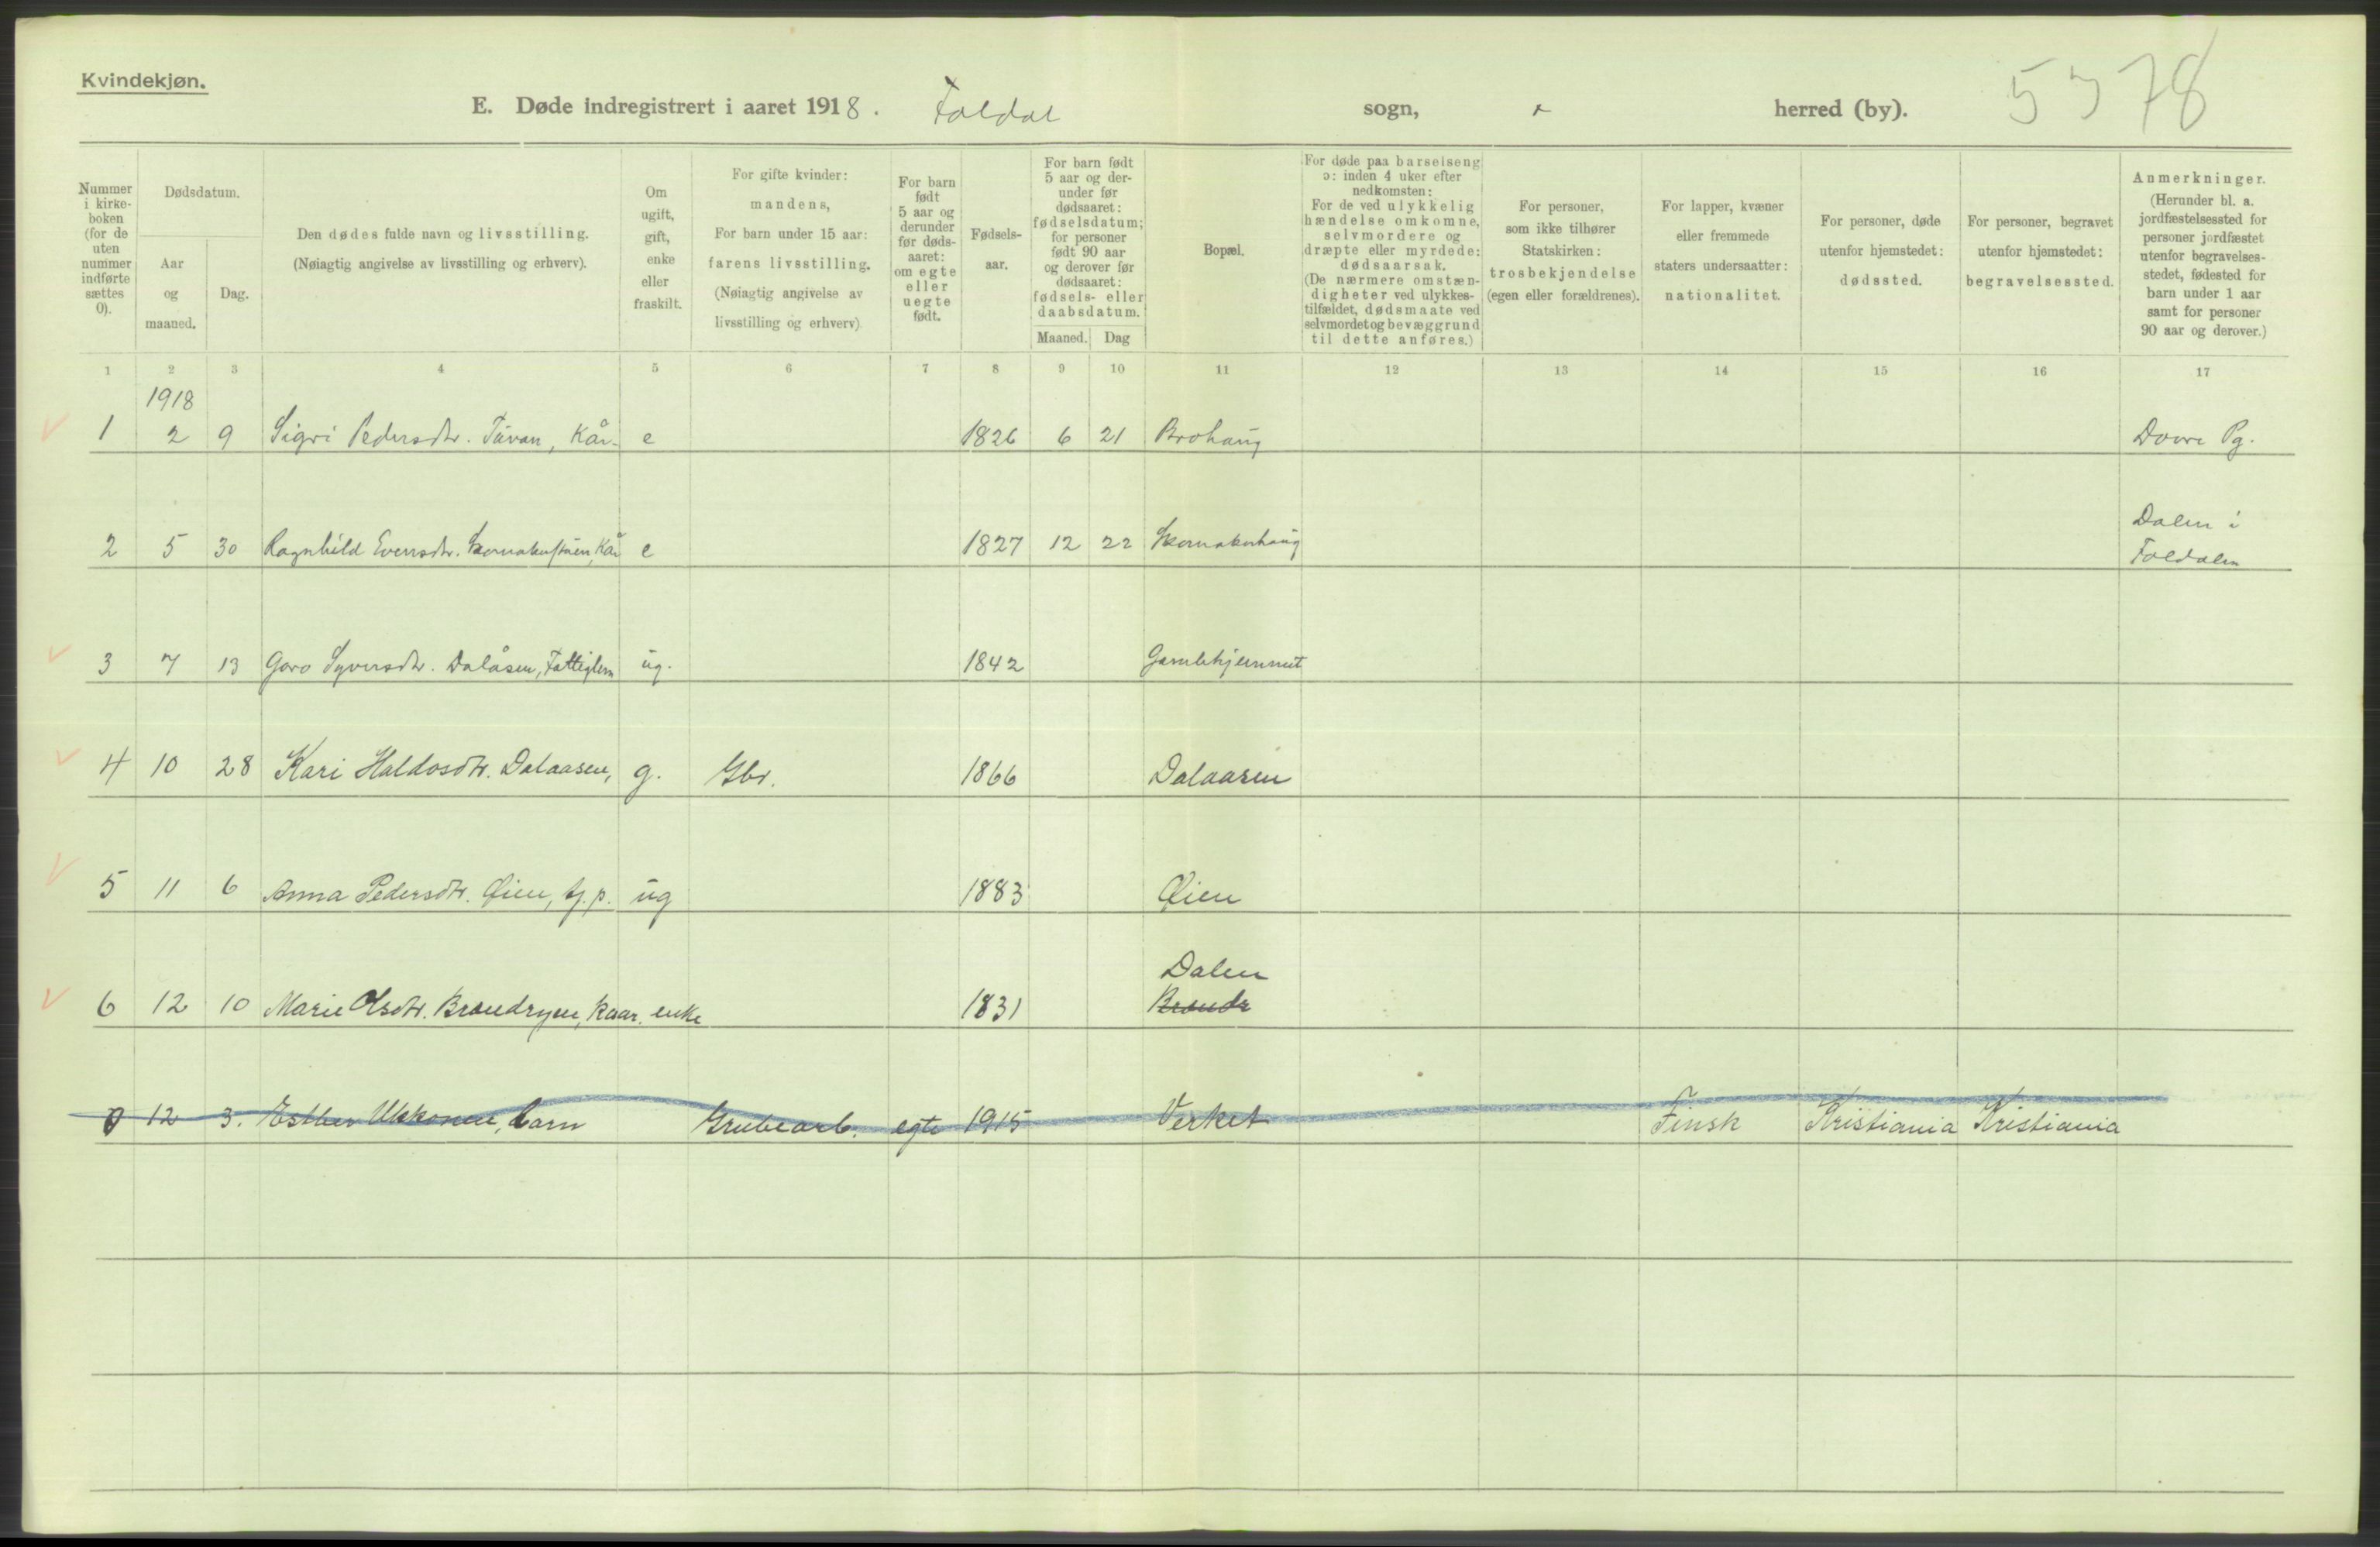 Kvindekjøn.
E. Døde indregistrert i aaret 1918. Foldal sogn, herred (by). 5378
Nummer i kirkeboken (for de uten nummer indførte sættes 0).
Dødsdatum.
Aar og maaned.
Dag.
Den dødes fulde navn og livsstilling.
(Nøiagtig angivelse av livsstilling og erhverv).
Om ugift, gift, enke eller fraskilt.
For gifte kvinder: mandens,
For barn under 15 aar: farens livsstilling.
(Nøiagtig angivelse av livsstilling og erhverv)
For barn født 5 aar og derunder før dødsaaret: om egte eller uegte født.
Fødselsaar.
For barn født 5 aar og derunder før dødsaaret: fødselsdatum; for personer født 90 aar og derover før dødsaaret: fødsels- eller daabsdatum.
Maaned. Dag
Bopæl.
For døde paa barselseng ɔ: inden 4 uker efter nedkomsten:
For de ved ulykkelig hændelse omkomne, selvmordere og dræpte eller myrdede: dødsaarsak.
(De nærmere omstændigheter ved ulykkestilfældet, dødsmaate ved selvmordet og bevæggrund til dette anføres.)
For personer, som ikke tilhører Statskirken: trosbekjendelse (egen eller forældrenes).
For lapper, kvæner eller fremmede staters undersaatter: nationalitet.
For personer, døde utenfor hjemstedet: dødssted.
For personer, begravet utenfor hjemstedet: begravelsessted.
Anmerkninger.
(Herunder bl. a. jordfæstelsessted for personer jordfæstet utenfor begravelsesstedet, fødested for barn under 1 aar samt for personer 90 aar og derover.)
1 2 3 4 5 6 7 8 9 10 11 12 13 14 15 16 17
1918
1 2 9 Sigri Pedersdtr. Tuvan, Kår. e 1826 6 21 Brohaug Dovre Pg.
2 5 30 Ragnhild Evensdtr. Kår e 1827 12 22 Skomakerhaug Dalen i
Foldalen
3 7 13 Goro Syversdtr. Dalåsen, Fattiglem ug. 1842 Gamlehjemmet
4 10 28 Kari Haldosdtr. Dalaasen, g. Gbr. 1866 Dalaasen
5 11 6 Anna Pedersdtr. Øien, tj. p. ug 1883 Øien
Dalen
6 12 10 Marie Olsdtr. Brændryen, kaar. enke 1831 Brænde
0 12 3. Esther Ukkonen, barn Grubearb. egte 1915 Verket Finsk Kristiania Kristiania